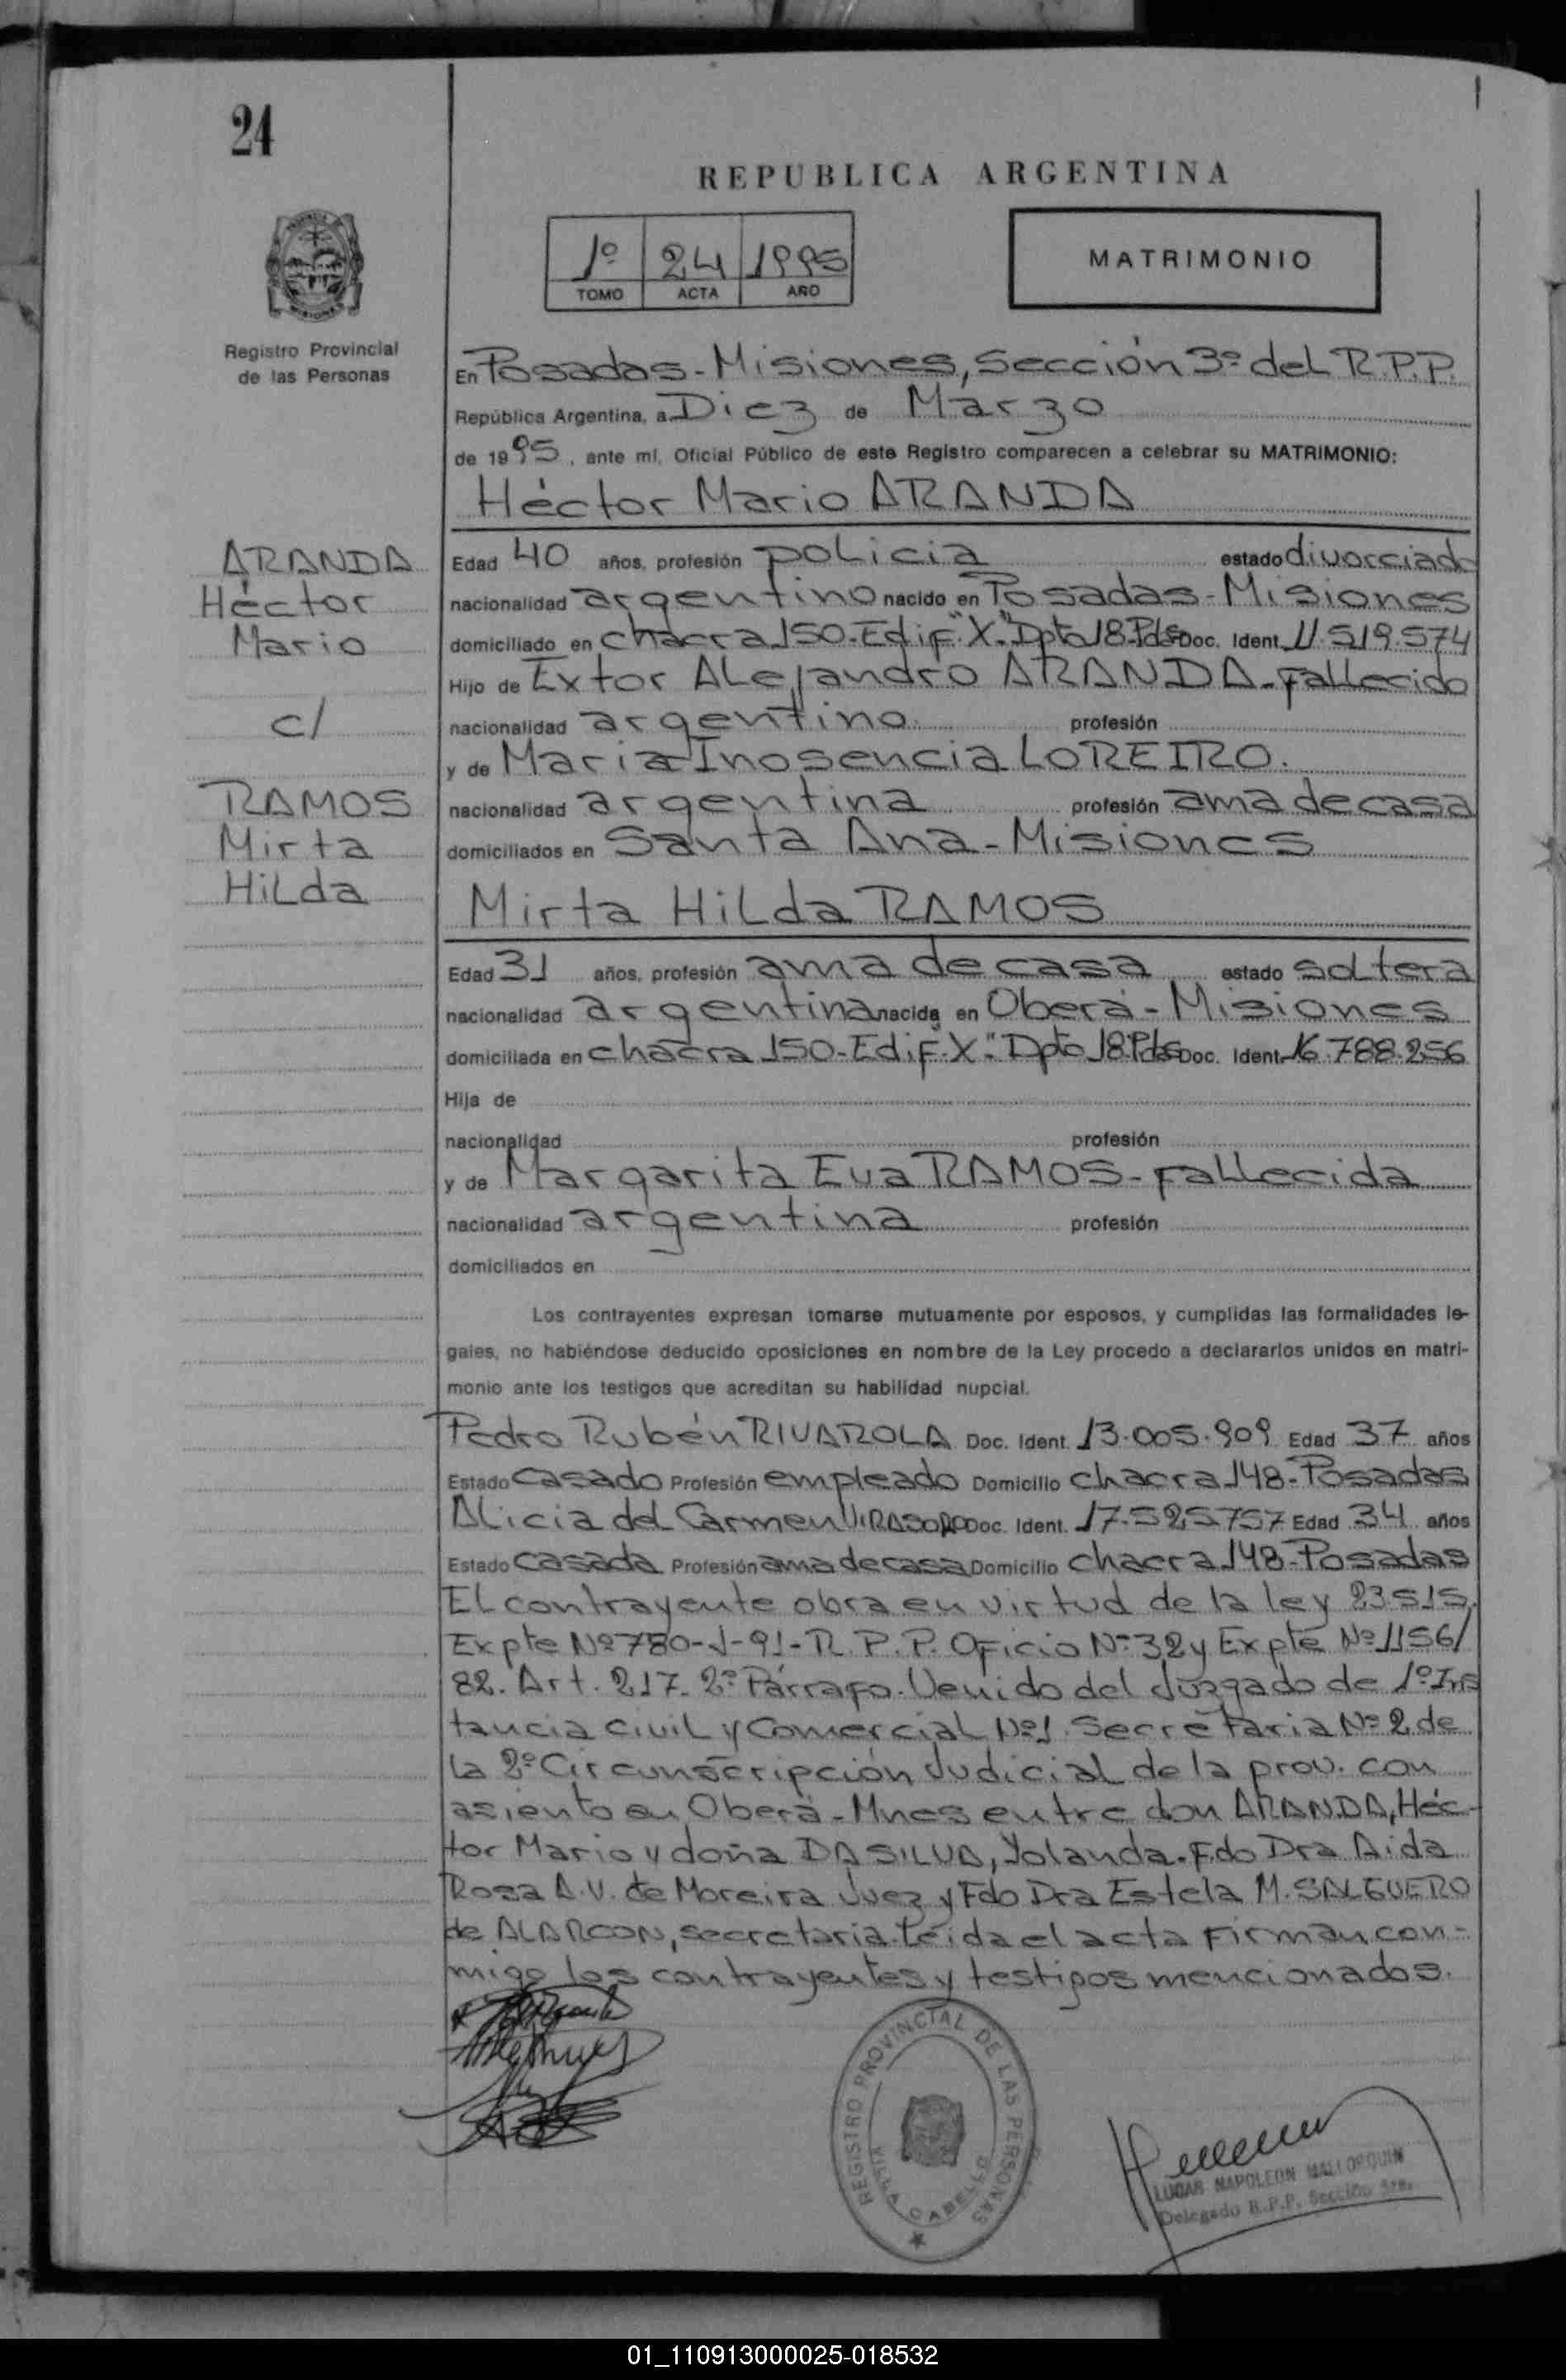 24
REPUBLICA ARGENTINA
1º 24 1995
TOMO ACTA AÑO
MATRIMONIO
Registro Provincial
de las Personas
En Posadas - Misiones, Sección 3º del R.P.P.
República Argentina, a Diez de Marzo
de 1995, ante mí, Oficial Público de este Registro comparecen a celebrar su MATRIMONIO:
Héctor Mario ARANDA
ARANDA
Héctor
Mario
c/
RAMOS
Mirta
Hilda
Edad 40 años, profesión policia estado divorciado
nacionalidad argentino nacido en Posadas - Misiones
domiciliado en chacra 150-Edif "X" Dpto 18-Pdas Doc. Ident. 11.519.574
Hijo de Extor Alejandro ARANDA - Fallecido
nacionalidad argentino profesión
y de Maria Inosencia LOREIRO.
nacionalidad argentina profesión ama de casa
domiciliados en Santa Ana - Misiones
Mirta Hilda RAMOS
Edad 31 años, profesión ama de casa estado soltera
nacionalidad argentina nacida en Oberá - Misiones
domiciliada en chacra 150-Edif. X." Dpto 18 Pdas Doc. Ident. 16.788.256
Hija de
nacionalidad profesión
y de Margarita Eva RAMOS - Fallecida
nacionalidad argentina profesión
domiciliados en
Los contrayentes expresan tomarse mutuamente por esposos, y cumplidas las formalidades le-
gales, no habiéndose deducido oposiciones en nombre de la Ley procedo a declararlos unidos en matri-
monio ante los testigos que acreditan su habilidad nupcial.
Pedro Rubén RIVAROLA Doc. Ident. 13.005.909 Edad 37 años
Estado Casado Profesión empleado Domicilio chacra 148-Posadas
Alicia del Carmen VIRASORO Doc. Ident. 17.525757 Edad 34 años
Estado Casada Profesión ama de casa Domicilio chacra 148-Posadas
El contrayente obra en virtud de la ley 23515,
Expte Nº 780-J-91-R.P.P. Oficio Nº 32 y Expte Nº 1156/
82. Art. 217. 2º Párrafo. Venido del Juzgado de 1º Ins
tancia Civil y Comercial Nº 1 Secretaria Nº 2 de
la 2º Circunscripción Judicial de la prov. con
asiento en Oberá - Mnes entre don ARANDA, Héc-
tor Mario y doña DA SILVA, Yolanda. Fdo Dra Aida
Rosa A.V. de Moreira Juez y Fdo Dra Estela M. SALGUERO
de ALARCON, secretaria. Leida el acta Firman con-
migo los contrayentes y testigos mencionados.
REGISTRO PROVINCIAL DE LAS PERSONAS
CABELLO
NAPOLEON MALLORQUIN
Delegado R.P.P. Sección 3ra.
01_110913000025-018532